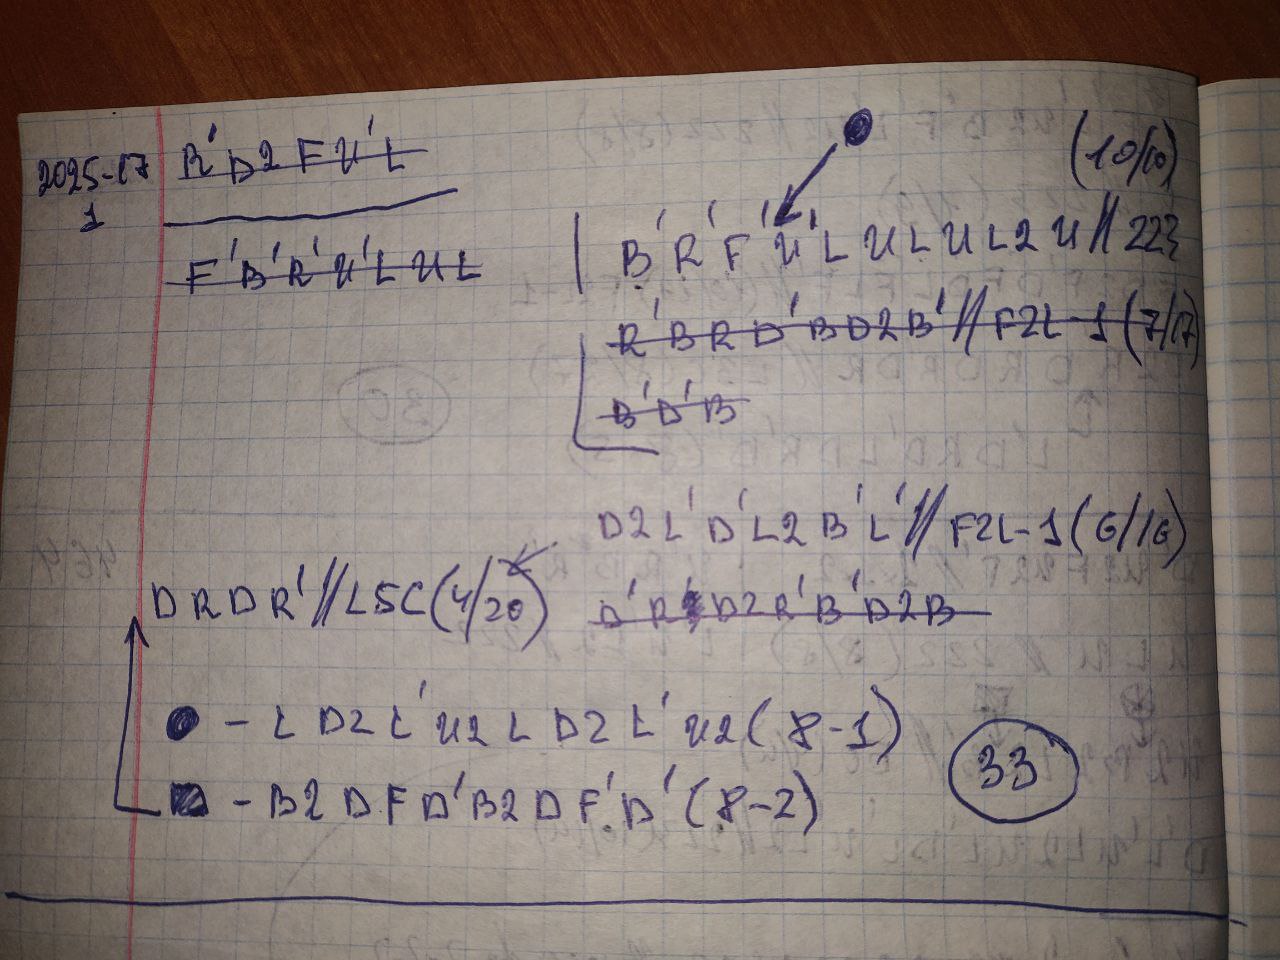 2025-17
1
R' D2 F U' L
F' B' R' U' L U L
(10/10)
B' R' F' U' L U L U L2 U // 223
R' B R D' B D2 B' // F2L-1 (7/17)
B' D' B
D2 L' D' L2 B' L' // F2L-1 (6/16)
D R D R' // LSC (4/20)
D2 R' B' D2 B
- L D2 L' U2 L D2 L' U2 (8-1)
- B2 D F D' B2 D F' D' (8-2)
33